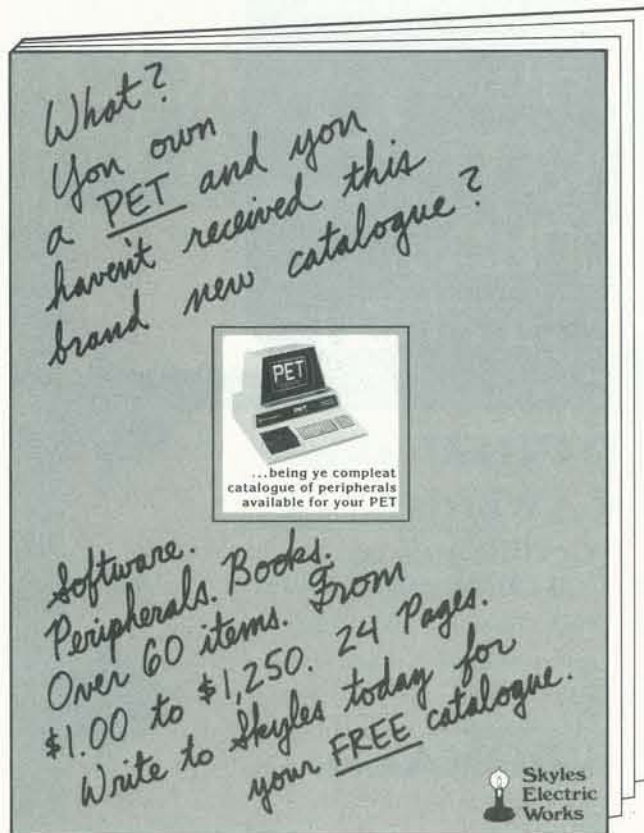 What?
You own
a PET and you
haven't received this
brand new catalogue?
PET
PET
...being ye compleat
catalogue of peripherals
available for your PET
Software.
Peripherals. Books.
Over 60 items. From
$1.00 to $1,250. 24 Pages.
Write to Skyles today for
your FREE catalogue.
Skyles
Electric
Works